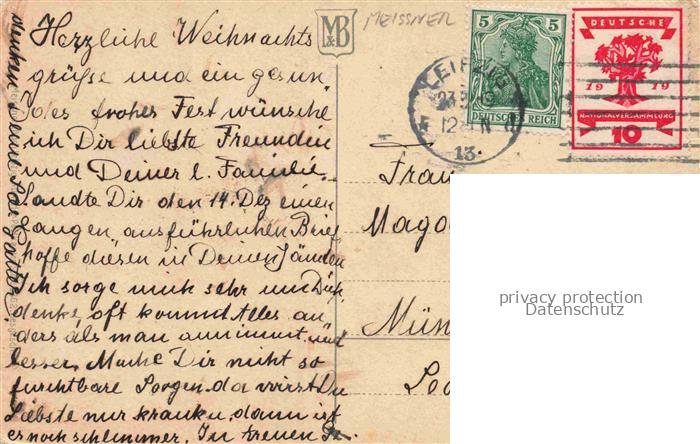 Herzliche Weihnachts
grüße und ein gesun
des frohes Fest wünsche
ich Dir liebste Freundin
und Deiner l. Familie.
Sandte Dir den 14. Dez einen
langen ausführlichen Brief
hoffe diesen in Deinen Händen
Ich sorge mich sehr um Dich
denke, oft kommt Alles an
ders als man annimmt und
besser. Mache Dir nicht so
furchtbare Sorgen, da wirst Du
Liebste nur krank u. dann ist
es noch schlimmer. In treuen
M&B
MEISSNER
LEIPZIG
13.
5
5
DEUTSCHES REICH
DEUTSCHE
1919
NATIONALVERSAMMLUNG
10
Frau
Magda
Mün
privacy protection
Datenschutz